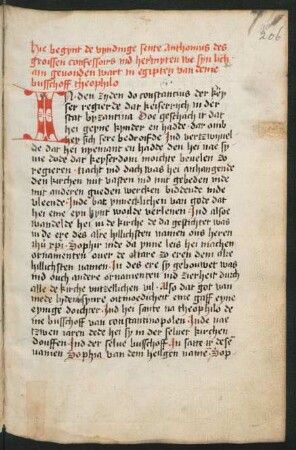 206
Hie begynt de vyndinge sente Anthonius des
groissen confessoirs ind heremyten we syn lich
am gevonden wart in egipten van deme
busschoff theophilo
In den zyden do constantius der key
ser regierde dat keiserrich in der
stat byzantina Doe geschach it dat
hei geyne kynder en hadde dar omb
hey sich sere bedroefde Ind vertzwyuel
de dat hei nyemant en hadde den hei nae sy
me dode dat keyserdom moichte beuelen zo
regieren nacht ind dach was hei anhangende
den kirchen mit vasten ind mit gebeden inde
mit anderen gueden wercken biddende inde
vleende Inde bat ynnetlichen van gode dat
hei eme eyn kynt wolde verlenen Ind also
wandelde hei in de kirche de da gesticht was
in de ere des alre hillichsten namen ons heren
ihu xpi Sophie inde da ynne leis hei machen
ornamenten over de altare zo eren dem alre
hillichsten namen In des ere sy gebouwet was
ind ouch andere ornamenten ind zierheit durch
alle de kirche untzellichen vil Also dat got van
mede lydens syne oitmoedicheit eme gaff eyne
eynige doichter Ind hei sante na theophilo de
me busschoff van constantinopolen Inde nae
tzwen iaren dede hei sy in der seluer kirchen
douffen In der selue busschoff In satte ir dese
namen Sophia van dem heilgen name Sop